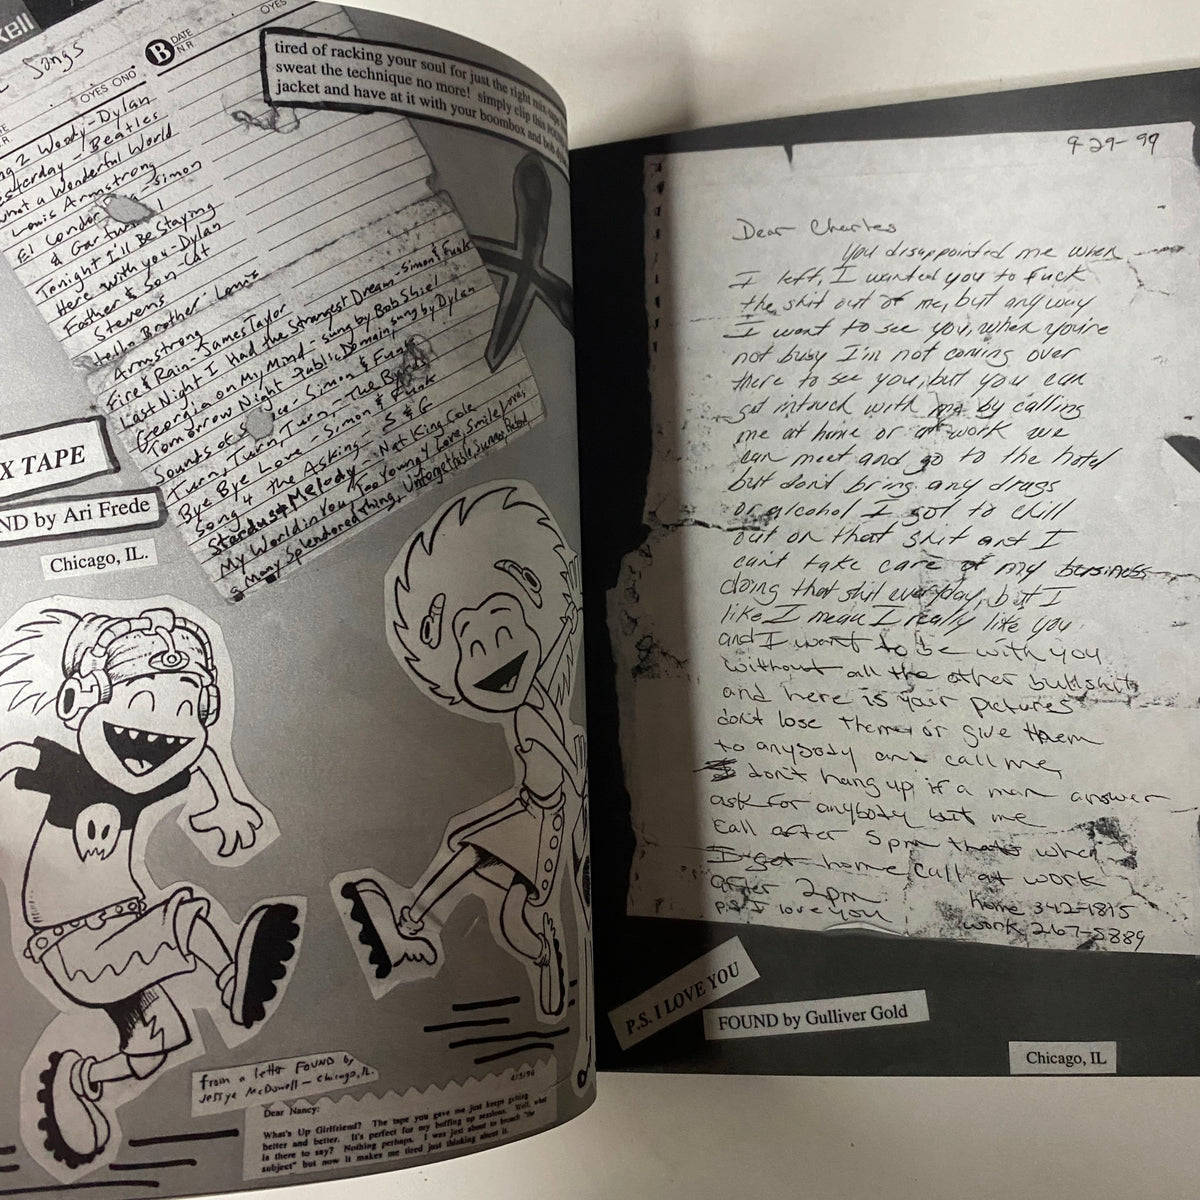 Songs
OYES ONO
B
DATE
N.R.
OYES
2 Woody-Dylan
Yesterday - Beatles
What a Wonderful World
Louis Armstrong
El Condor - Simon
& Garfunkel
Tonight I'll Be Staying
Here with you-Dylan
Father & Son-Cat
Stevens
Hello Brother- Louis
Armstrong
Fire & Rain - James Taylor
Last Night I Had the Strangest Dream - Simon & Funk
Georgia on My Mind - sung by Bob Shiel
Tomorrow Night - Public Domain, sung by Dylan
Sounds of - Simon & Funk
Turn, Turn, Turn, - The Byrds
Bye Bye Love - Simon & Funk
Song 4 the Asking - S & G
Stardust Melody - Nat King Cole
My World in You, Too Young 4 Love, Smile Love,
a Many Splendored Thing, Unforgettable,
tired of racking your soul for just the right mix-tape
sweat the technique no more! simply clip this
jacket and have at it with your boombox and
X TAPE
ND by Ari Frede
Chicago, IL.
from a letter FOUND by
Jessye McDowell - Chicago, IL.
4/5/96
Dear Nancy:
What's Up Girlfriend? The tape you gave me just keeps getting
better and better. It's perfect for my buffing up sessions. Well, what
is there to say? Nothing perhaps. I was just about to broach "the
subject" but now it makes me tired just thinking about it.
9-29-99
Dear Charles
You disappointed me when
I left, I wanted you to fuck
the shit out of me, but anyway
I want to see you, when you're
not busy I'm not coming over
there to see you, but you can
get intouch with me by calling
me at home or at work we
can meet and go to the hotel
but don't bring any drugs
or alcohol I got to chill
out on that shit ant I
can't take care of my business
doing that shit everyday, but I
like I mean I really like you
and I want to be with you
without all the other bullshit
and here is your pictures
don't lose them or give them
to anybody and call me,
don't hang up if a man answer
ask for anybody but me
Call after 5pm thats when
I get home, call at work
after 2pm
p.s. I love you
home 342-1815
work 267-5889
P.S. I LOVE YOU
FOUND by Gulliver Gold
Chicago, IL